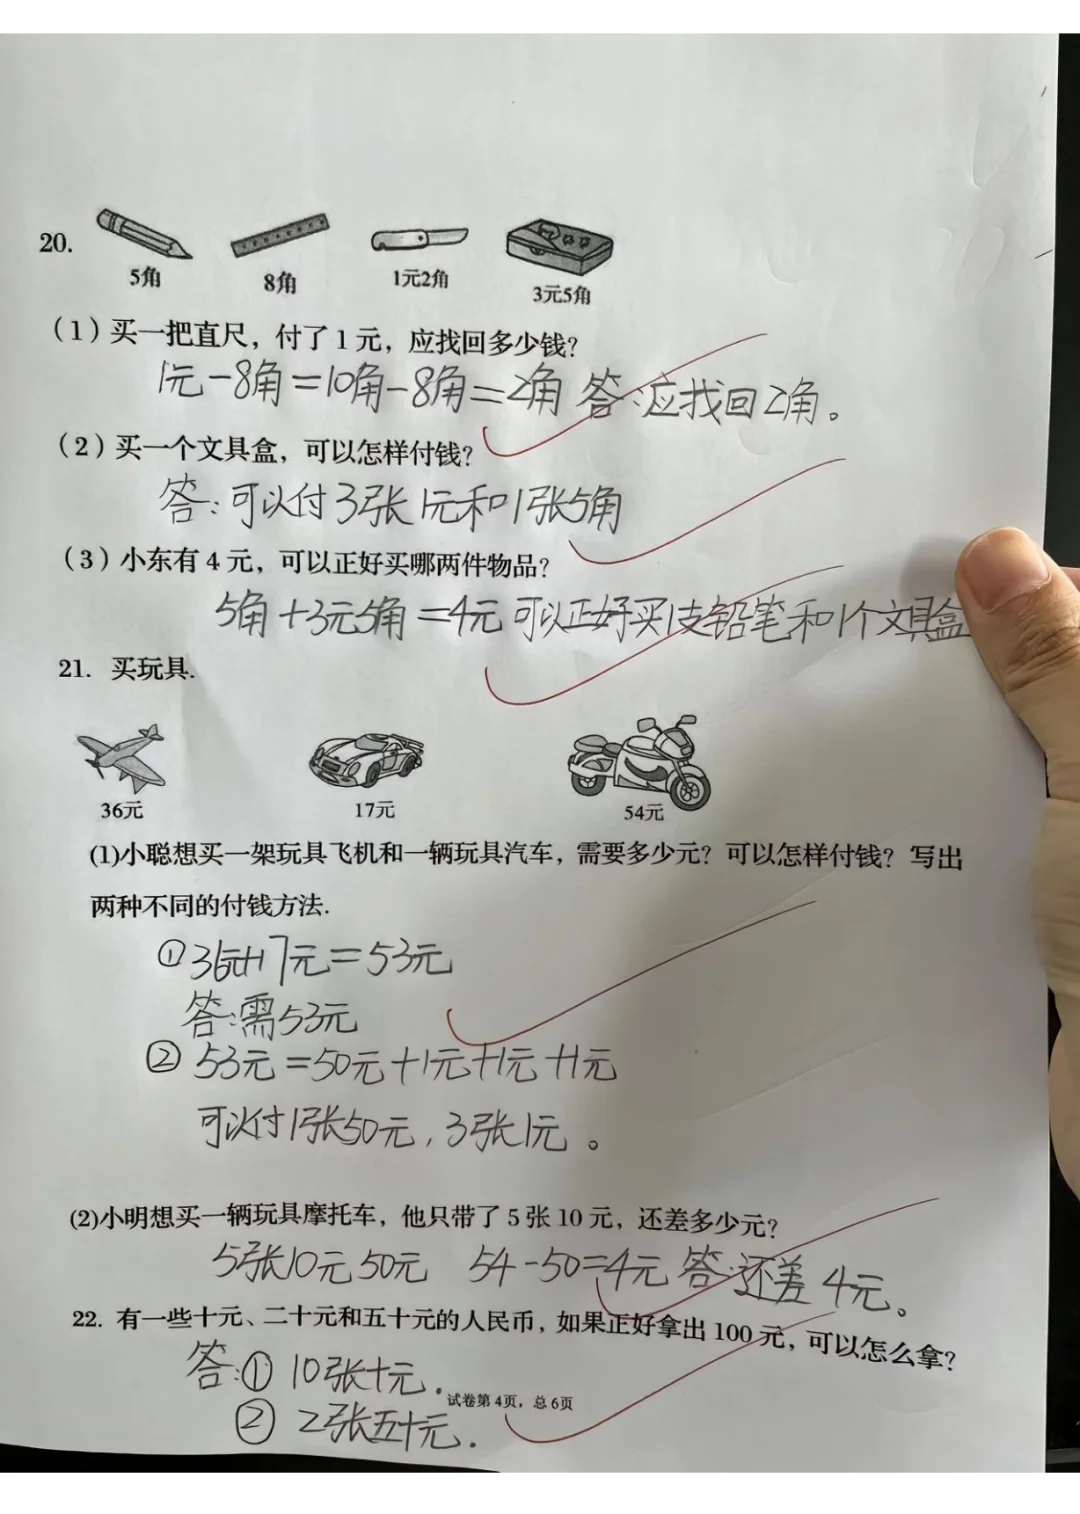 20.
5角 8角 1元2角 3元5角
（1）买一把直尺，付了1元，应找回多少钱？
1元-8角=10角-8角=2角 答：应找回2角。
（2）买一个文具盒，可以怎样付钱？
答：可以付3张1元和1张5角
（3）小东有4元，可以正好买哪两件物品？
5角+3元5角=4元 可以正好买1支铅笔和1个文具盒
21. 买玩具.
36元 17元 54元
(1)小聪想买一架玩具飞机和一辆玩具汽车，需要多少元？可以怎样付钱？写出
两种不同的付钱方法.
①36元+17元=53元
答：需53元
② 53元=50元+1元+1元+1元
可以付1张50元，3张1元。
(2)小明想买一辆玩具摩托车，他只带了5张10元，还差多少元？
5张10元 50元 54-50=4元 答：还差4元。
22. 有一些十元、二十元和五十元的人民币，如果正好拿出100元，可以怎么拿？
答：① 10张十元.
试卷第4页，总6页
② 2张五十元.